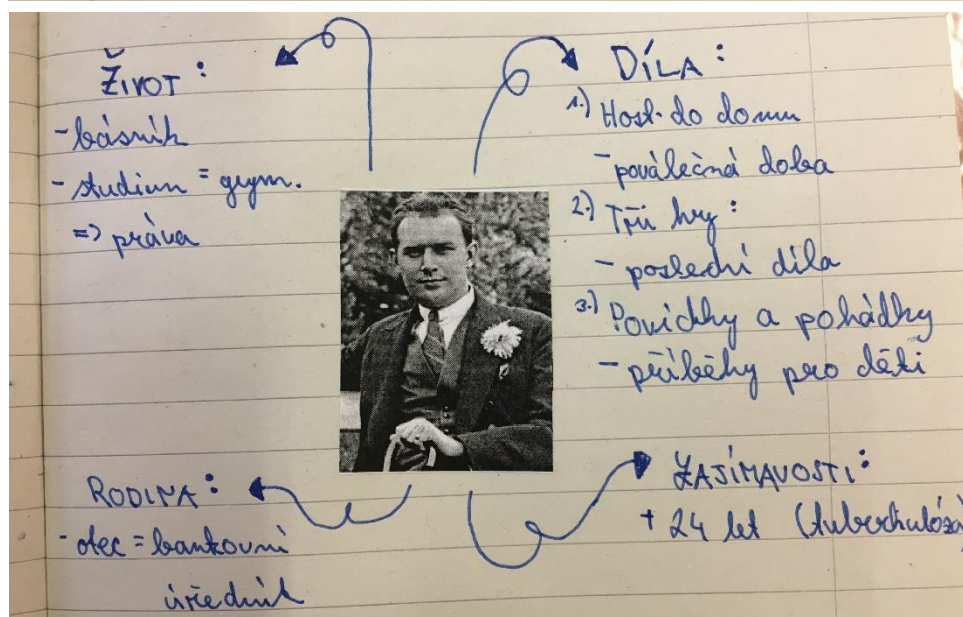 Život:
- básník
- studium = gym.
=> práva
Díla:
1.) Host do domu
- poválečná doba
2.) Tři hry:
- poslední díla
3.) Povídky a pohádky
- příběhy pro děti
Rodina:
- otec = bankovní
úředník
Zajímavosti:
+ 24 let (tuberkulóza)